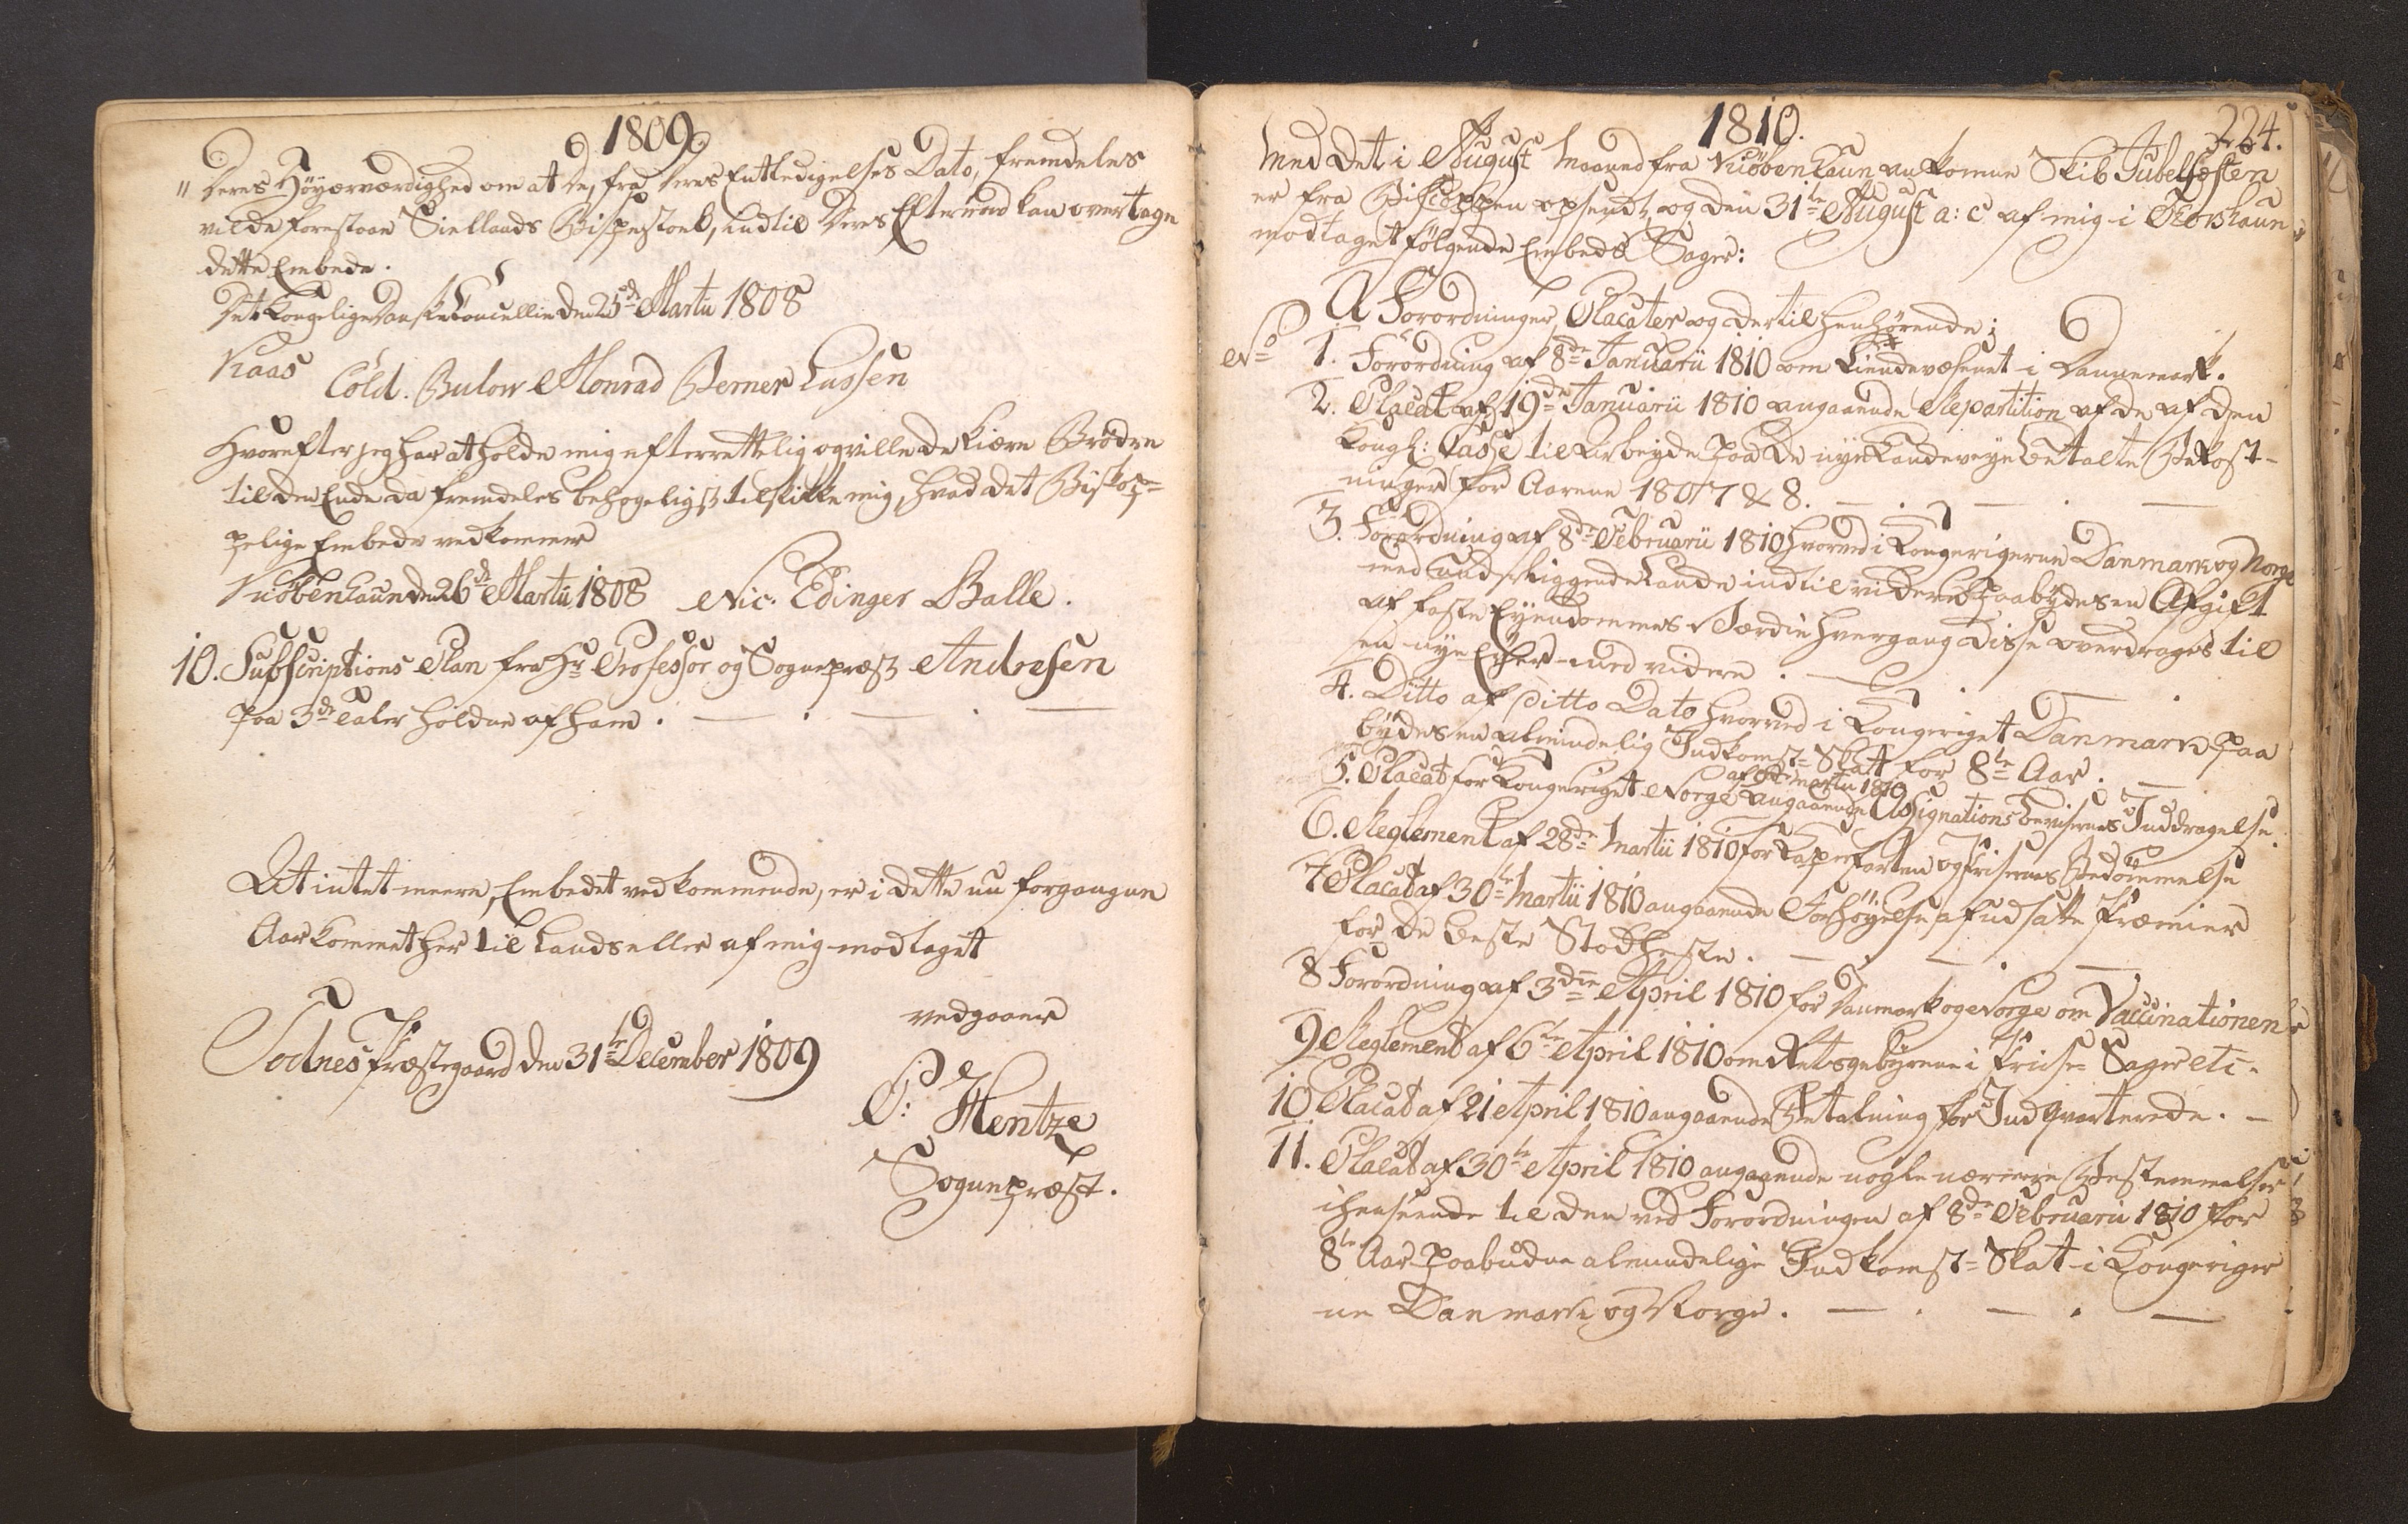 1809
" Deres Høyærværdighed om at De, fra Deres Entledigelses Dato, fremdeles
vilde forestaae Siellands Bispestoel, indtil Deres Eftermand kan overtage
dette Embede.
Det Kongelige Danske Cancellie den 25de Martii 1808
Kaas
Cold. Bulow Monrad Berner Lassen
Hvorefter jeg har at holde mig efterrettelig og ville de kiære Brødre
til den Ende da fremdeles behageligst tilskikke mig, hvad det Biskop-
pelige Embede vedkommer
Kiöbenhaun den 26de Martii 1808 Nic. Edinger Balle.
10. Subscriptions Plan fra Hr Professor og Sognepræst Andresen
paa 3de Taler holdne af ham.
At intet meere, Embedet vedkommende, er i dette nu forgangne
Aar kommet her til Lands eller af mig modtaget
vedgaaer
Sodnes Præstegaard den 31te December 1809
P: Hentze
Sognepræst.
1810.
224.
Med det i August Maaned fra Kiöbenhaun ankomne Skib Jubelfæsten
er fra Biscoppen opsendt, og den 31te August a: c: af mig i Thorshaun
modtaget følgende Embeds Sager:
A Forordninger, Placater og dertil henhørende;
No 1. Forordning af 8de Januarii 1810 om Tiendevæsenet i Dannemark.
2. Placat af 19de Januarii 1810 angaaende Repartition af de af den
Kongl: Casse til Arbeyde paa de nye Landeveye betalte Bekost-
ninger for Aarene 1807 & 8.
3. Forordning af 8de Februarii 1810 hvorved i Kongerigerne Danmark og Norge
med underliggende Lande indtil videre paabydes en Afgift
af faste Eyendommes Værdie hvergang disse overdrages til
en nye Eyer med videre.
4. Ditto af Ditto Dato hvorved i Kongeriget Danmark paa
bydes en almindelig Indkomst-Skat for 8te Aar.
af Martii 1810
5. Placat for Kongeriget Norge angaaende Assignations bevisernes Inddragelse.
6. Reglement af 28de Martii 1810 for Kaperfarten og Prisernes Bedömmelse
7 Placat af 30te Martii 1810 angaaende Forhöyelse af udsatte Præmier
for de beste Stodheste.
8 Forordning af 3die April 1810 for Danmark og Norge om Vaccinationen
9 Reglement af 6te April 1810 om Retsgebyrene i Prise-Sager etc.
10 Placat af 21 April 1810 angaaende Betalning for Indqvarterede.
11. Placat af 30te April 1810 angaaende nogle nærmere Bestemmelser
i henseende til den ved Forordningen af 8de Februarii 1810 for
8te Aar paabudne almindelige Indkomst-Skat i Kongeriger
ne Danmark og Norge.